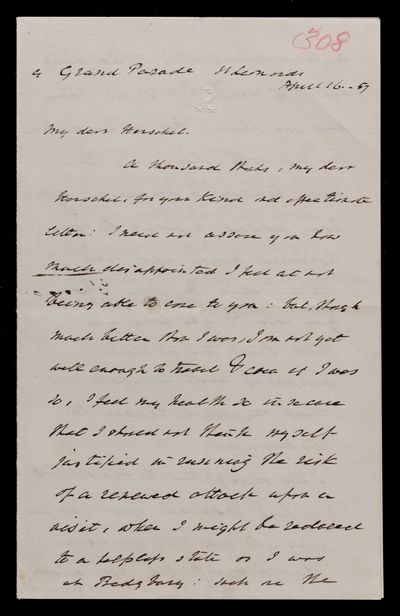 308
4 Grand Parade St Leonards
April 16. - 59
My dear Herschel.
A thousand thanks, my dear
Herschel, for your kind and affectionate
letter: I need not assure you how
much disappointed I feel at not
being able to come to you: but, though
much better than I was, I am not yet
well enough to travel & even if I was
so, I feel my health so insecure
that I should not think myself
justified in running the risk
of a renewed attack upon a
visit, when I might be reduced
to a helpless state as I was
at Bedgbury: such are the